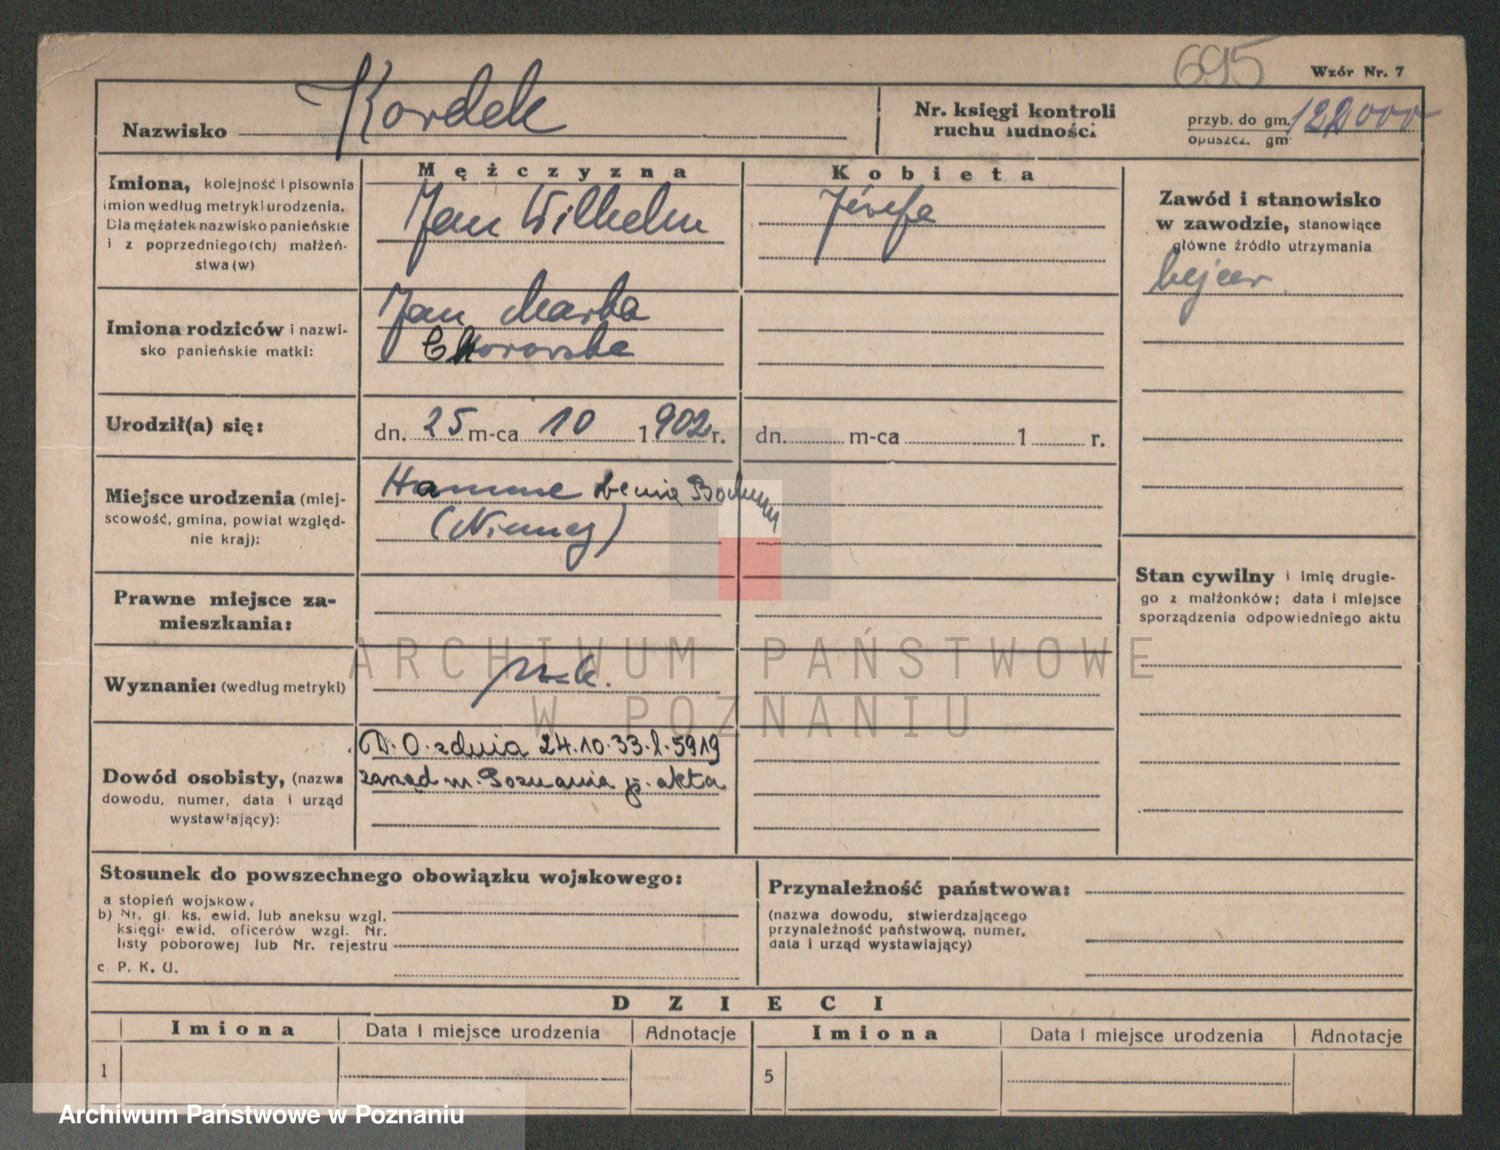 695
Wzór Nr. 7
Nazwisko Kordek
Nr. księgi kontroli
ruchu ludności
przyb. do gm. 122000
opuszcz. gm
Mężczyzna
Kobieta
Imiona, kolejność i pisownia
imion według metryki urodzenia.
Dla mężatek nazwisko panieńskie
i z poprzedniego(ch) małżeń-
stwa(w)
Jan Wilhelm
Józefa
Zawód i stanowisko
w zawodzie, stanowiące
główne źródło utrzymania
Imiona rodziców i nazwi-
sko panieńskie matki:
Jan Marta
Urodził(a) się:
dn. 25 m-ca 10 1902 r.
dn. m-ca 1 r.
Miejsce urodzenia (miej-
scowość, gmina, powiat względ-
nie kraj):
Hamme Bochum
(Niemcy)
Prawne miejsce za-
mieszkania:
Stan cywilny i imię drugie-
go z małżonków; data i miejsce
sporządzenia odpowiedniego aktu
Wyznanie: (według metryki)
rz-k.
Dowód osobisty, (nazwa
dowodu, numer, data i urząd
wystawiający):
D. O. z dnia 24.10.33. l. 5919
zarząd m. Poznania j. akta
Stosunek do powszechnego obowiązku wojskowego:
a stopień wojskowy
b) Nr. gł. ks. ewid. lub aneksu wzgl.
księgi ewid. oficerów wzgl. Nr.
listy poborowej lub Nr. rejestru
c. P. K. U.
Przynależność państwowa:
(nazwa dowodu, stwierdzającego
przynależność państwową, numer,
data i urząd wystawiający)
DZIECI
Imiona Data i miejsce urodzenia Adnotacje Imiona Data i miejsce urodzenia Adnotacje
1
5
ARCHIWUM PAŃSTWOWE
W POZNANIU
Archiwum Państwowe w Poznaniu